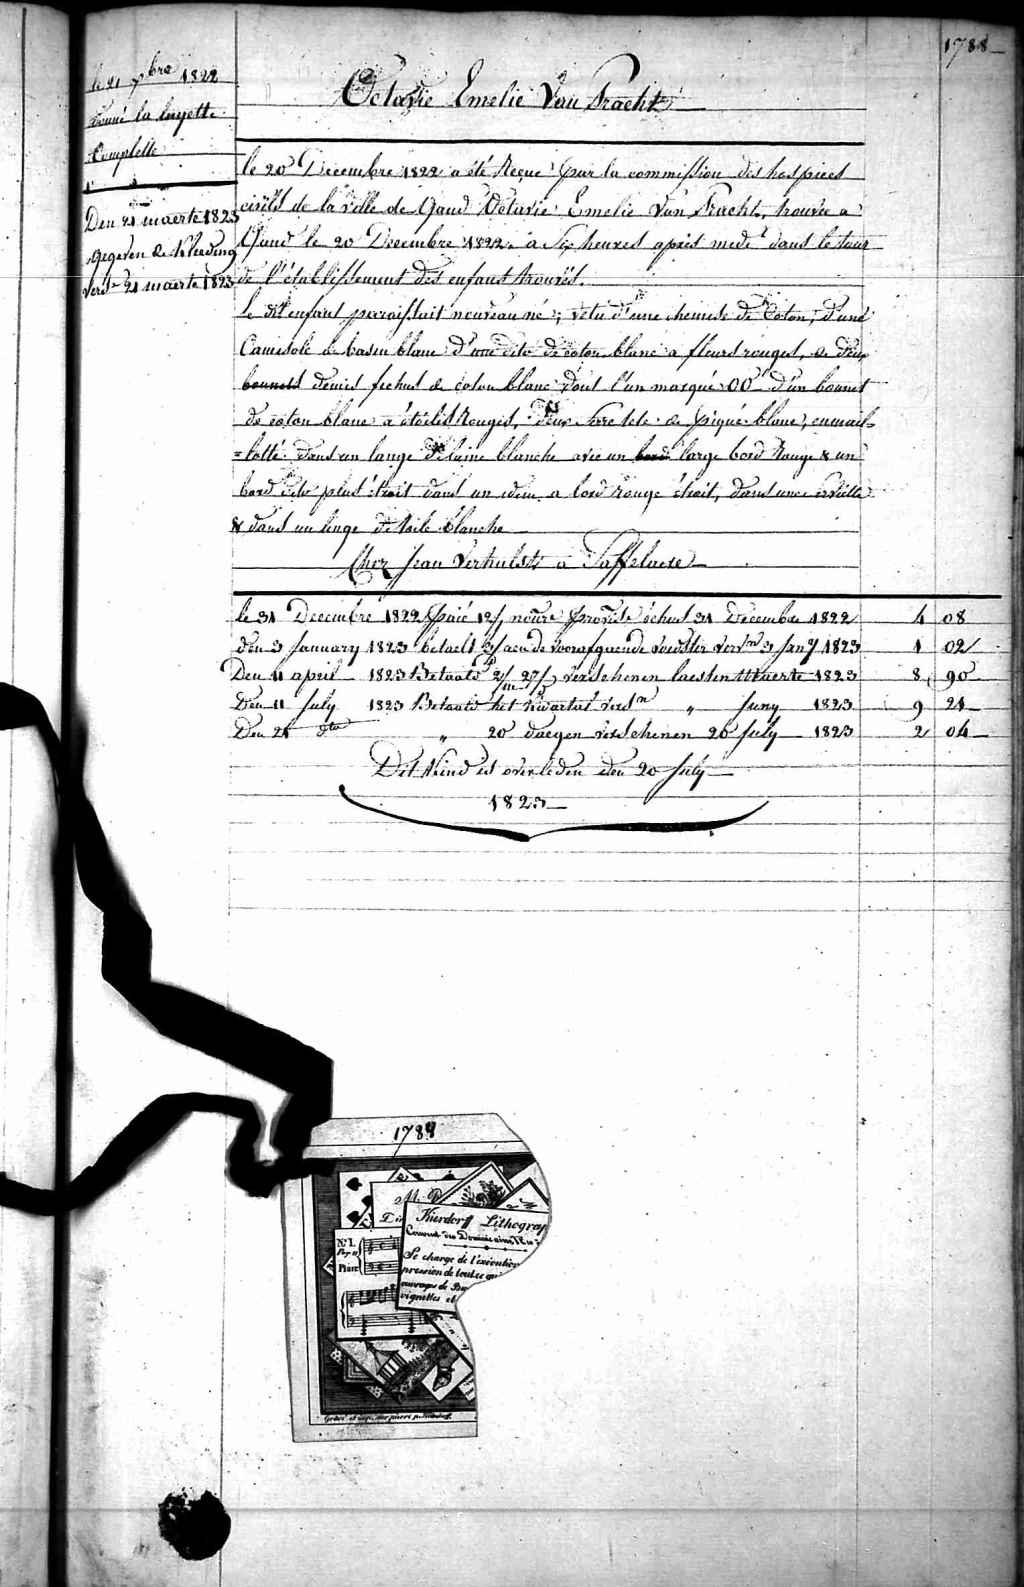 1788
le 21 xbre 1822
donné la layette
Complette
Den 21 maerte 1823
gegeven de kleeding
versn 21 maerte 1823
Octavie Emelie Van Pracht
le 20 Decembre 1822 a été Reçue par la commission des hospices
civils de la ville de Gand Octavie Emelie Van Pracht, trouvée a
Gand le 20 Decembre 1822 a Six heures après midi dans le tour
de l'établissement des enfans trouvés.
Le dit enfant parraissait nouveau né; vetu d'une chemise de Coton, d'une
Camisole de basin blanc d'une dito de coton blanc a fleurs rouges, de deux
bonnets demies fichus de coton blanc dont l'un marqué OO d'un bonnet
de coton blanc a étoiles Rouges, deux Serre tete de piqué blanc, enmail=
=lotté dans un lange de laine blanche avec un bord large bord Rouge & un
bord dito plus étroit dans un idem a bord rouge étroit, dans une serviette
& dans un linge de toile blanche
Chez Jean Verhulst a Saffelaere
le 31 Decembre 1822 payé 12/j nourre provise échus 31 Decembre 1822 4 08
den 3 January 1823 betaelt 3/ aen de voorafgaende voedster versn 3 Jany 1823 1 02
Den 11 april 1823 Betaald 2/m 27/d verschenen laesten Maerte 1823 8 90
Den 11 July 1823 Betaald het kwartael versn " Juny 1823 9 21
Den 21 dto " 20 daegen verschenen 20 July 1823 2 04
Dit kind is overleden den 20 July
1823
1788
M. P
Kierdorff Lithograp
Couvent des Dominicains
No 1.
Se charge de l'exécution
pression de tout ce qui
ouvrages de
vignettes et